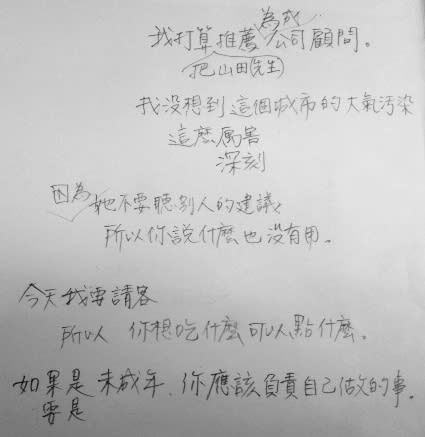 為成
我打算推薦 公司顧問。
把山田先生
我没想到這個城市的大氣汚染
這麼厲害
深刻
因為 她不要聽別人的建議,
所以你說什麼也沒有用。
今天我要請客
所以 你想吃什麼可以點什麼。
如果是 未成年、你應該負責自己做的事。
要是